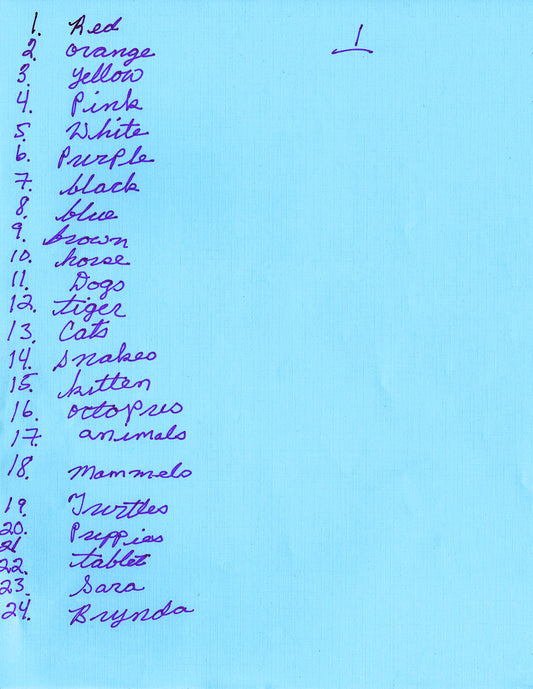 1
1. Red
2. orange
3. yellow
4. Pink
5. White
6. Purple
7. black
8. blue
9. brown
10. horse
11. Dogs
12. tiger
13. Cats
14. Snakes
15. kitten
16. octopus
17. animals
18. mammels
19. Turtles
20. Puppies
21
22. tablet
23. Sara
24. Brynda